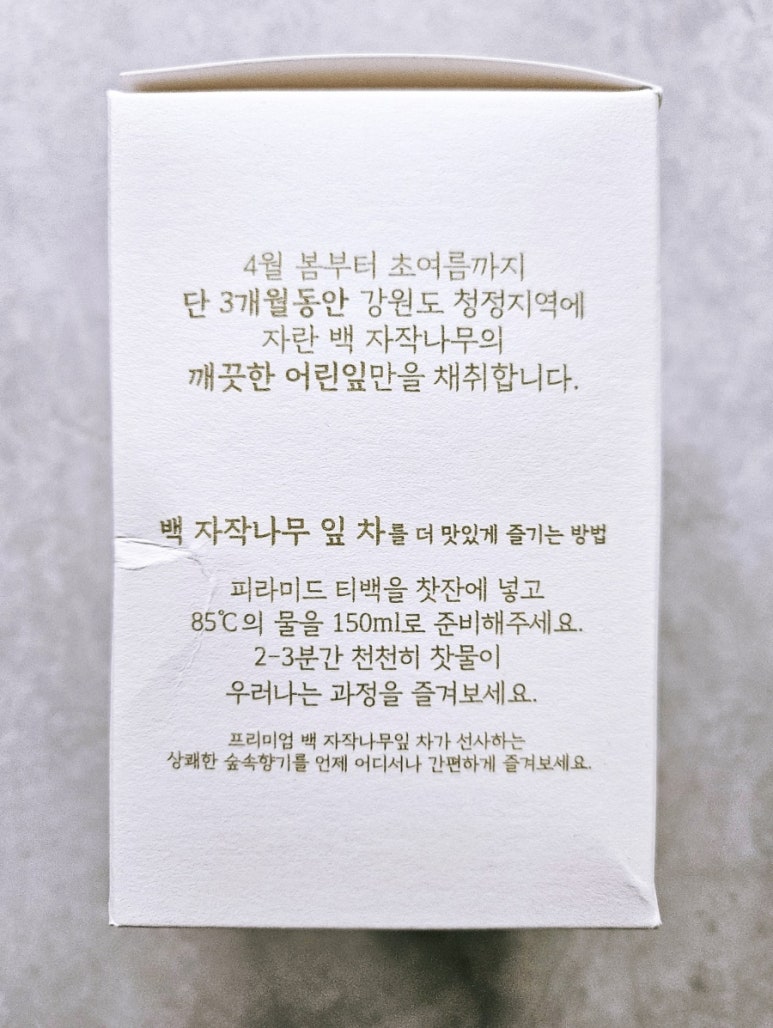 4월 봄부터 초여름까지
단 3개월동안 강원도 청정지역에
자란 백 자작나무의
깨끗한 어린잎만을 채취합니다.
백 자작나무 잎 차를 더 맛있게 즐기는 방법
피라미드 티백을 찻잔에 넣고
85℃의 물을 150ml로 준비해주세요.
2-3분간 천천히 찻물이
우러나는 과정을 즐겨보세요.
프리미엄 백 자작나무잎 차가 선사하는
상쾌한 숲속향기를 언제 어디서나 간편하게 즐겨보세요.